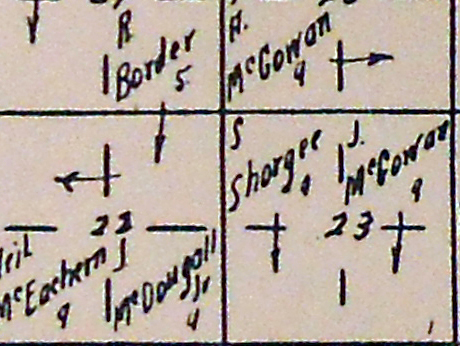 R
Border
5
A.
McGowan
9
S
Shorgee
9
J.
McGowan
9
22
23
Neil
McEachern
9
J
McDougall
Jr
9